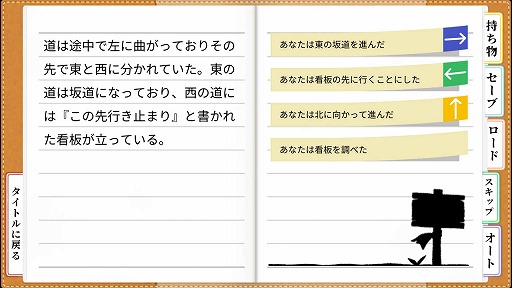 道は途中で左に曲がっておりその
先で東と西に分かれていた。東の
道は坂道になっており、西の道に
は『この先行き止まり』と書かれ
た看板が立っている。
あなたは東の坂道を進んだ
あなたは看板の先に行くことにした
あなたは北に向かって進んだ
あなたは看板を調べた
持ち物
セーブ
ロード
スキップ
オート
タイトルに戻る